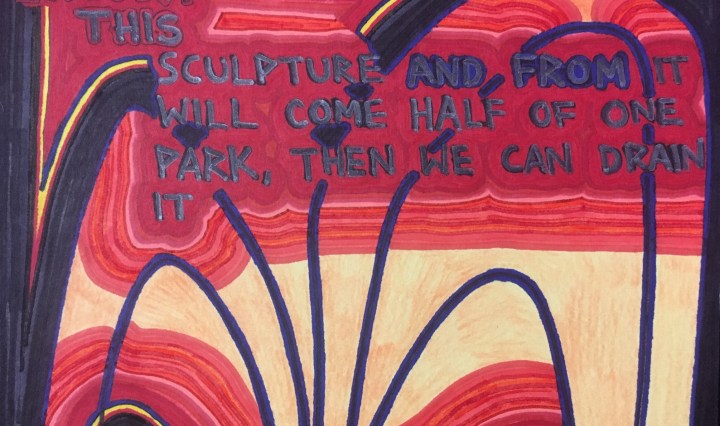 THIS
SCULPTURE AND FROM IT
WILL COME HALF OF ONE
PARK, THEN WE CAN DRAIN
IT